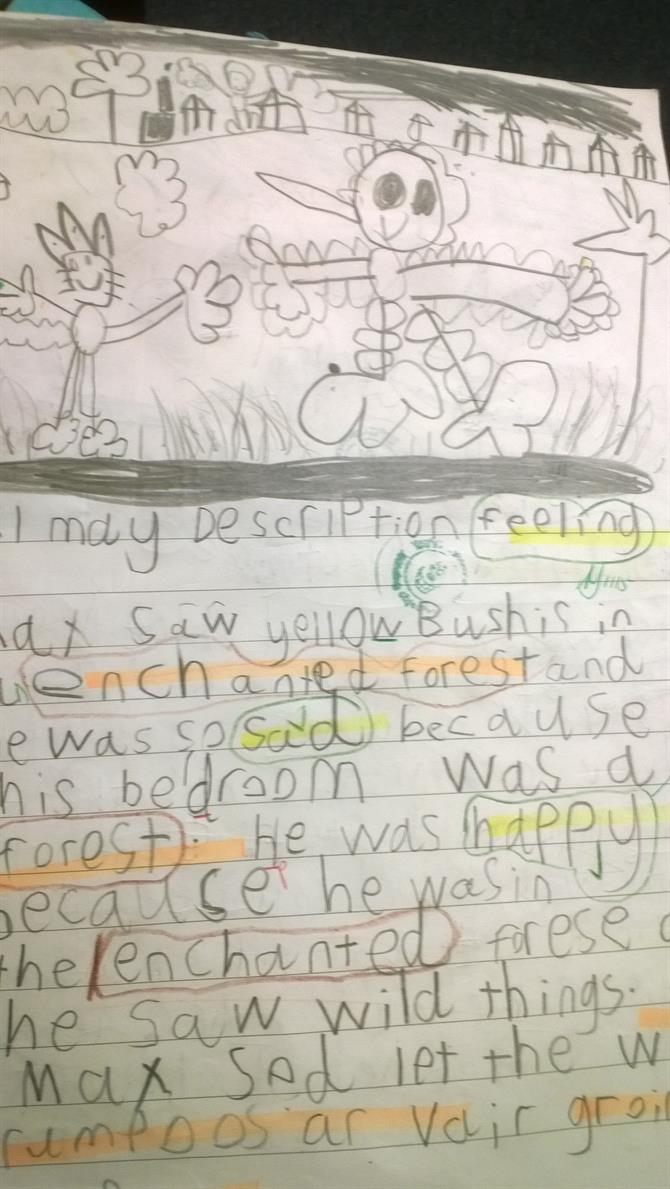 I may Description feeling
ax saw yellow Bushis in
enchanted forest and
e was so sad because
his bedroom was a
forest. He was happy
because he was in
the enchanted forese
he saw wild things.
Max Sed let the w
rumpoos ar vair groi